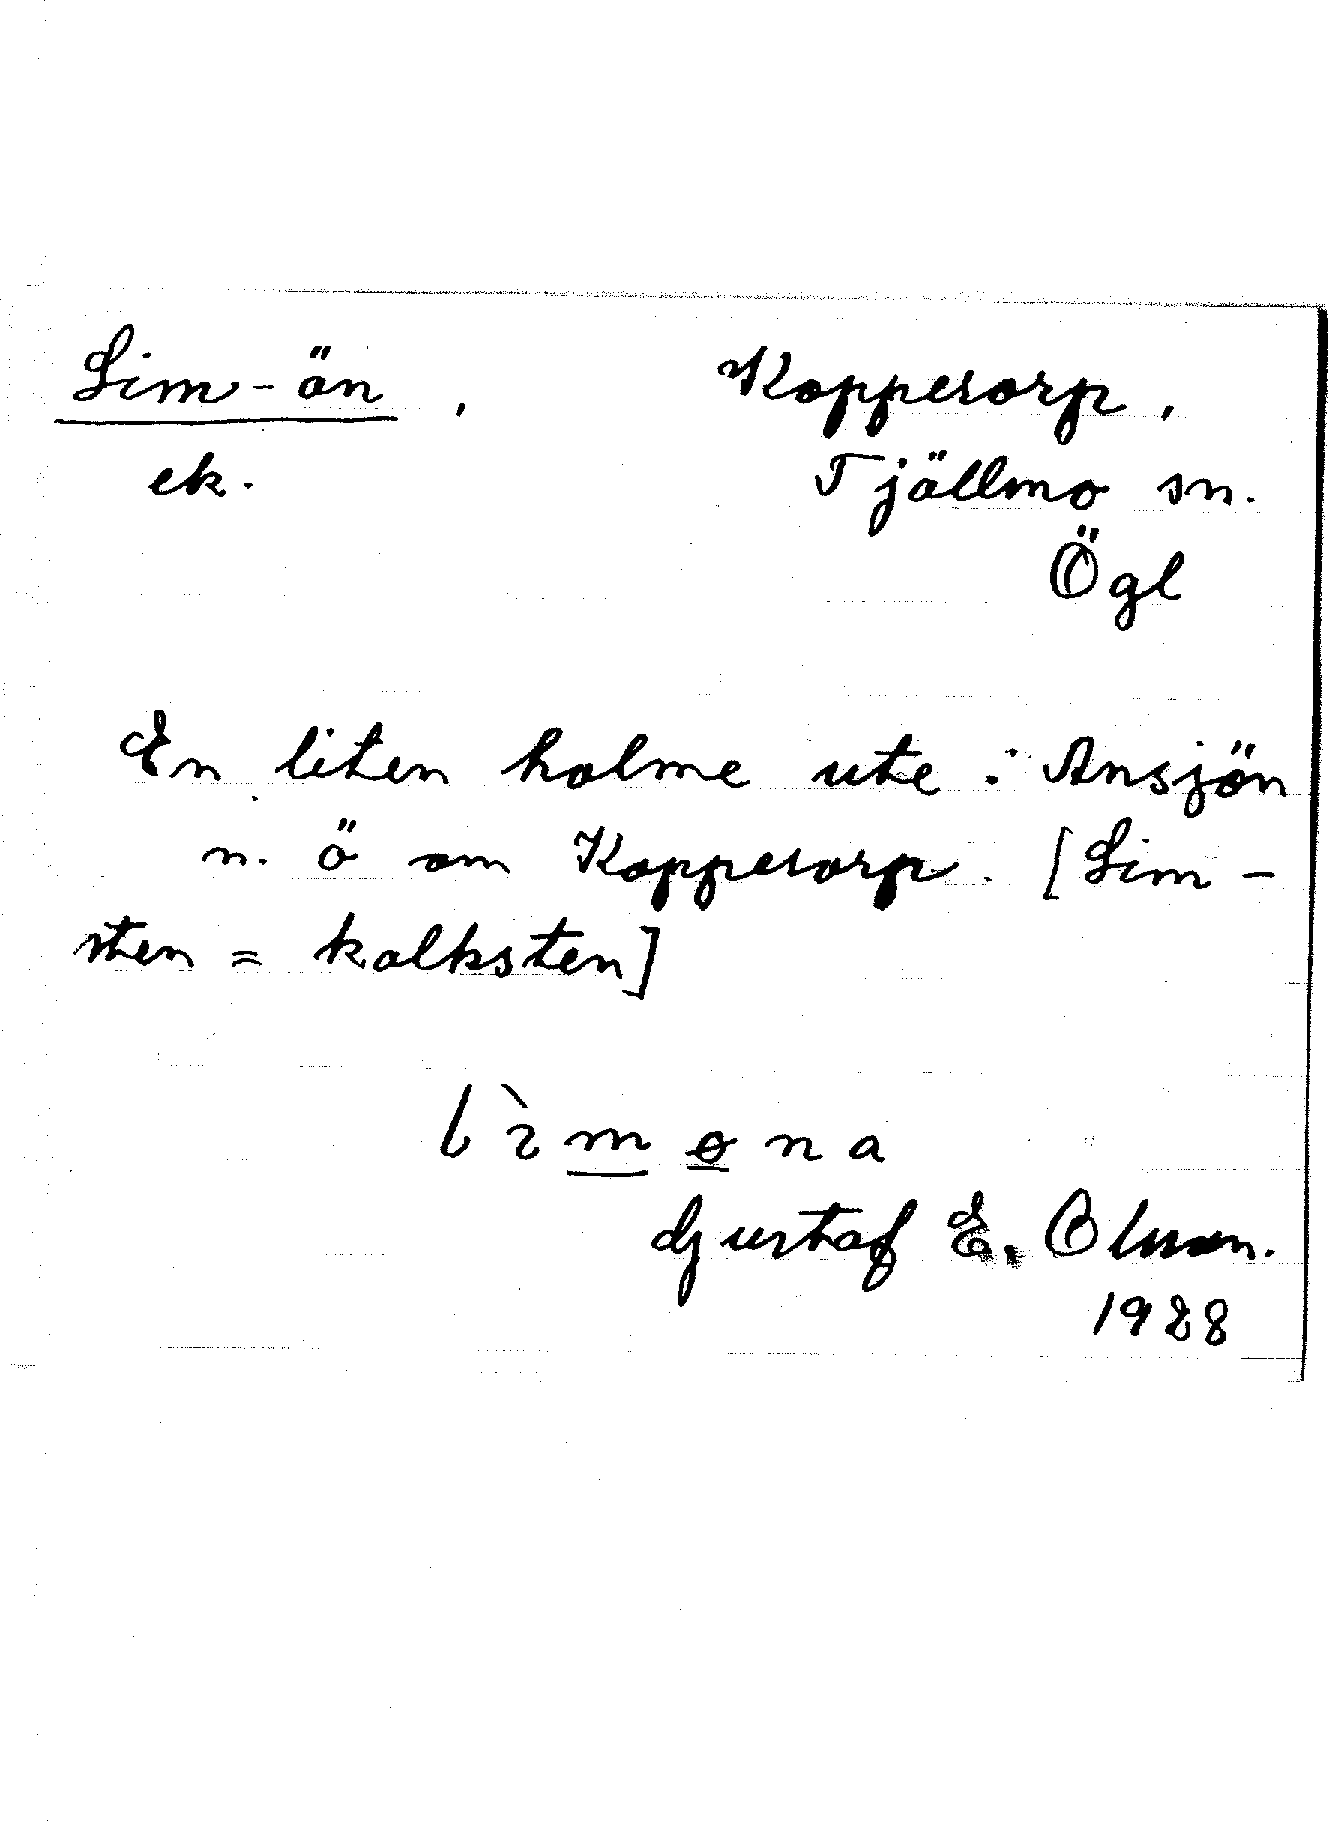 Lim-ön, Koppesorp,
ek. Tjällmo sn.
Ögl
En liten holme ute i Ansjön
n. ö om Koppesorp. [Lim-
sten = kalksten]
Gustaf E. Olsson.
1928